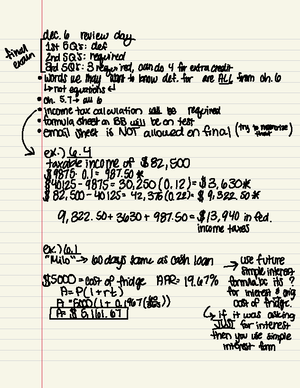 dec. 6 review day
final exam
1st 5 Q's: def
2nd SQ's: required
3rd SQ's: 3 required, can do 4 for extra credit
• words we may want to know def. for are ALL from ch. 6
↳ not equations ↵
• ch. 5.7 → all 6
• income tax calculation will be required
• formula sheet on BB will be on test
• email sheet is NOT allowed on final (try to memorize them)
ex.) 6.4
taxable income of $82,500
$9875 · 0.1 = 987.50 *
$40125 - 9875 = 30,250 (0.12) = $3,630 *
$82,500 - 40125 = 42,375 (0.22) = $9,322.50 *
9,322.50 + 3630 + 987.50 = $13,940 in fed. income taxes
ex.) 6.1
"Milo" → 60 days same as cash loan
$5000 = cost of fridge APR = 19.67%
A = P(1+rt)
A = 5000(1 + 0.1967(60/365))
A = $5,161.67
→ use future simple interest formula bc it's ? for interest & orig. cost of fridge.
↳ if it was asking JUST for interest then you use simple interest form